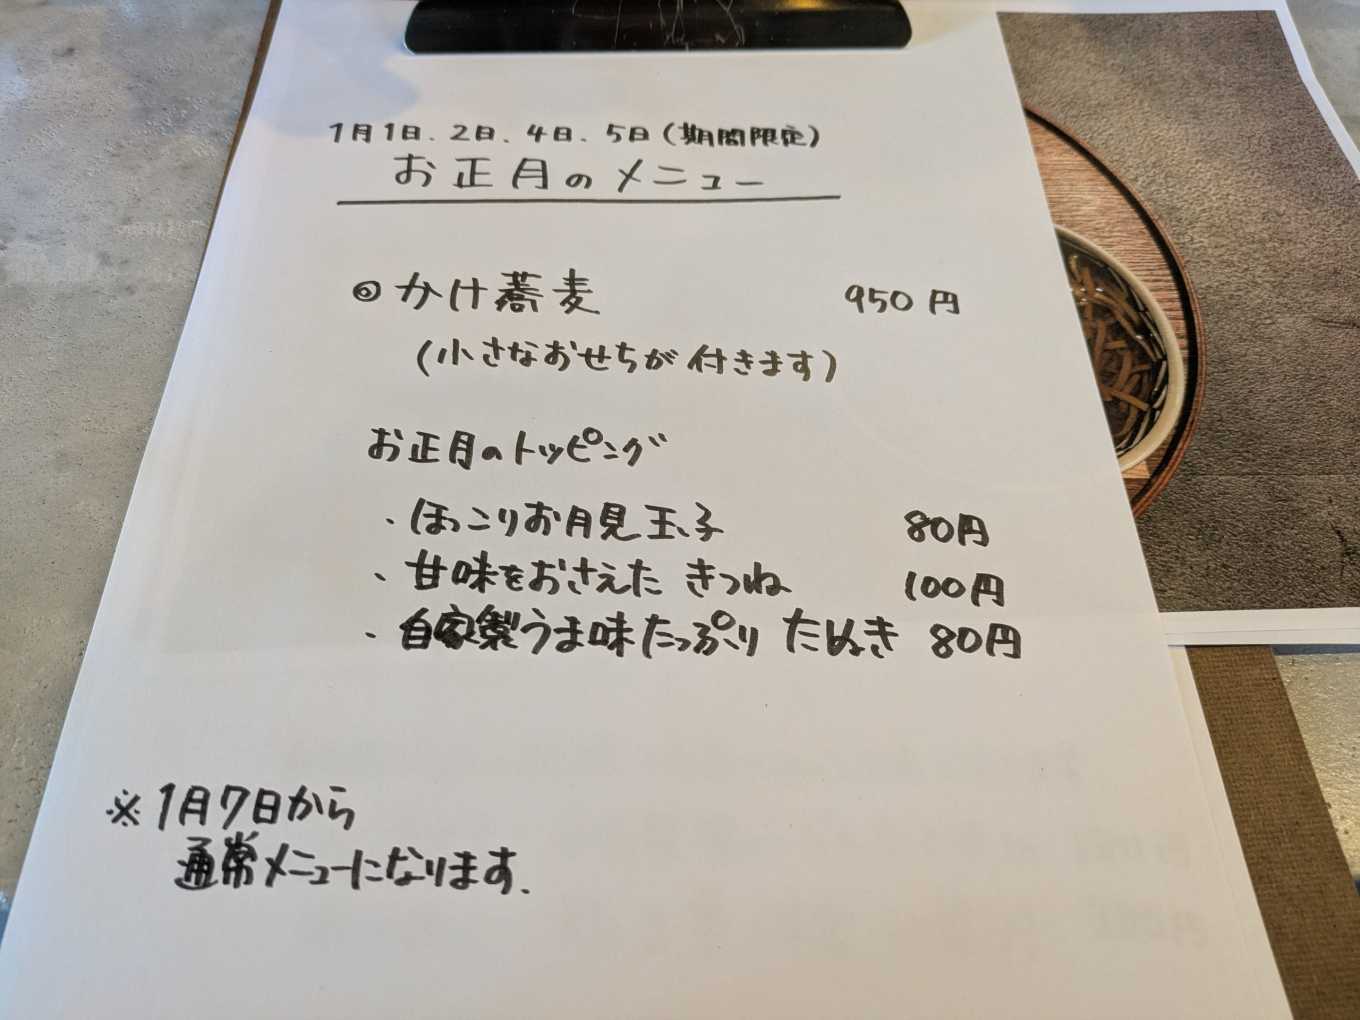 1月1日、2日、4日、5日(期間限定)
お正月のメニュー
◎かけ蕎麦 950円
(小さなおせちが付きます)
お正月のトッピング
・ほっこりお月見玉子 80円
・甘味をおさえた きつね 100円
・自家製うま味たっぷり たぬき 80円
※1月7日から
通常メニューになります.